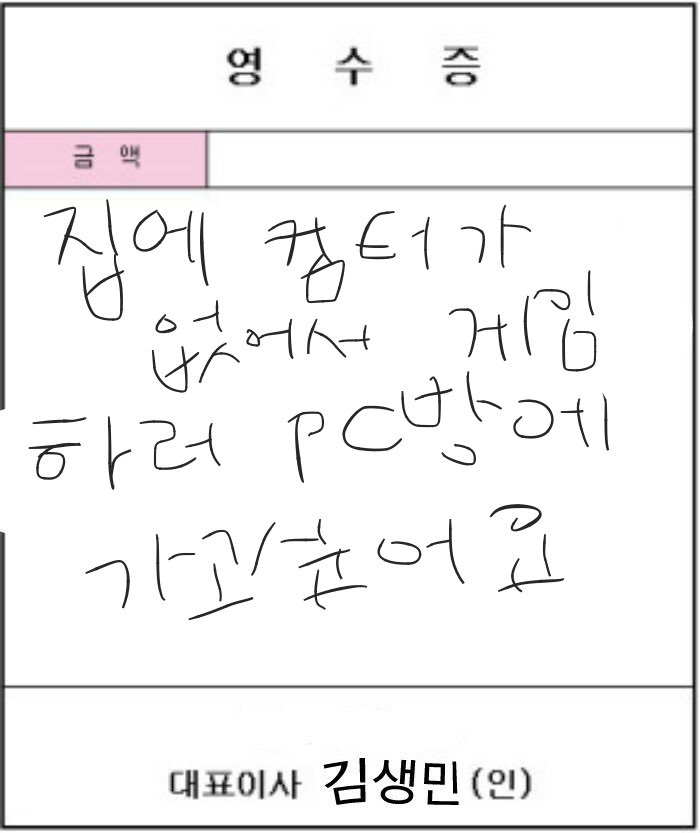 영 수 증
금 액
집에 컴터가
없어서 게임
하러 PC방에
가고싶어요
대표이사 김생민 (인)